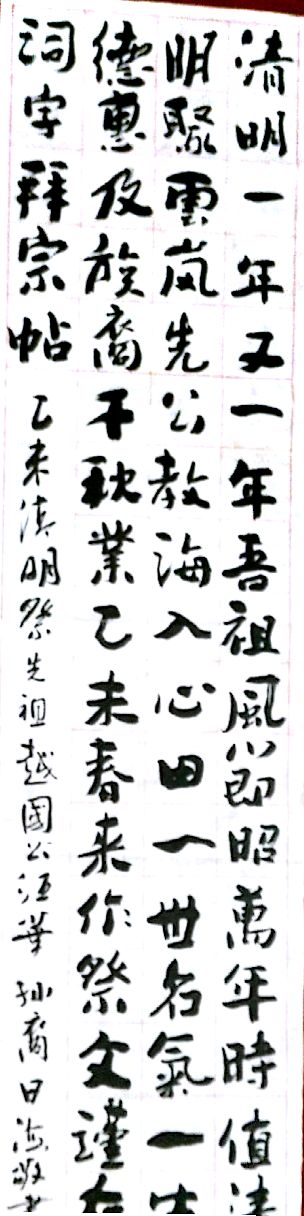 清明一年又一年吾祖風節昭萬年時值清
明聚雲嵐先公教海入心田一世名氣一
德惠及族裔千秋業乙未春來作祭文謹在
詞字拜宗帖
乙未清明祭先祖越國公汪華 孙裔日